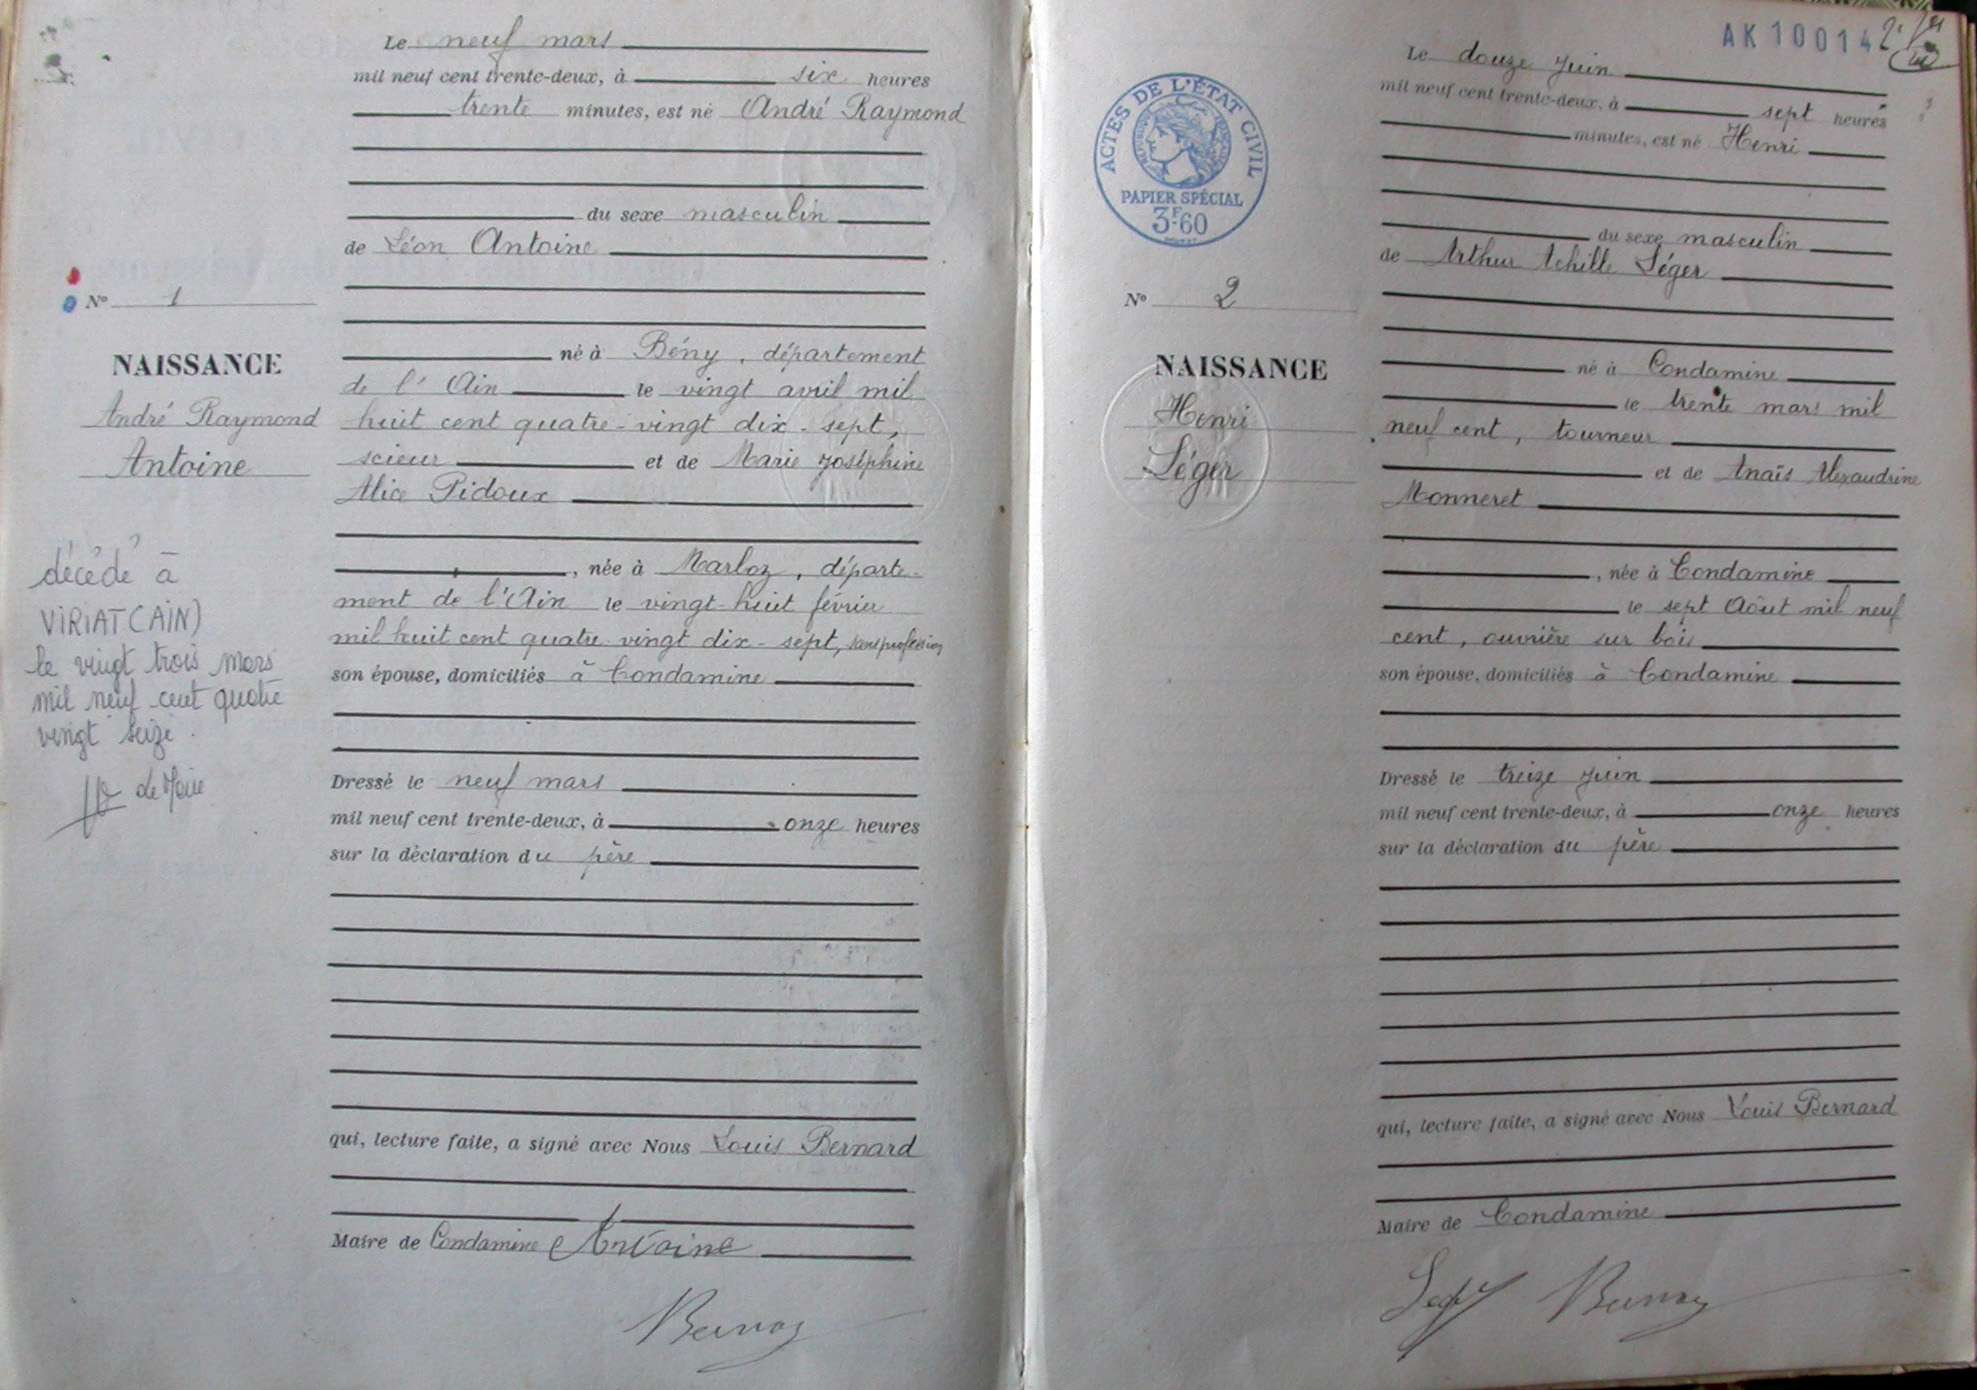 Le neuf mars
mil neuf cent trente-deux, à six heures
trente minutes, est né André Raymond
du sexe masculin
de Léon Antoine
N° 1
né à Bény, département
NAISSANCE
de l'Ain le vingt avril mil
André Raymond
huit cent quatre-vingt dix-sept,
Antoine
scieur et de Marie Joséphine
Alice Pidoux
, née à Marboz, départe-
ment de l'Ain le vingt-huit février
mil huit cent quatre vingt dix-sept, sans profession
son épouse, domiciliés à Condamine
décédé à
VIRIAT (AIN)
le vingt trois mars
mil neuf cent quatre
vingt seize.
le Maire
Dressé le neuf mars
mil neuf cent trente-deux, à onze heures
sur la déclaration du père
qui, lecture faite, a signé avec Nous Louis Bernard
Maire de Condamine Antoine
AK 100142
Le douze Juin
mil neuf cent trente-deux, à sept heures
minutes, est né Henri
ACTES DE L'ÉTAT CIVIL
PAPIER SPÉCIAL
3F.60
du sexe masculin
de Arthur Achille Léger
N° 2
né à Condamine
NAISSANCE
le trente mars mil
Henri
neuf cent, tourneur
Léger
et de Anaïs Alexandrine
Monneret
, née à Condamine
le sept Août mil neuf
cent, ouvrière sur bois
son épouse, domiciliés à Condamine
Dressé le treize Juin
mil neuf cent trente-deux, à onze heures
sur la déclaration du père
qui, lecture faite, a signé avec Nous Louis Bernard
Maire de Condamine